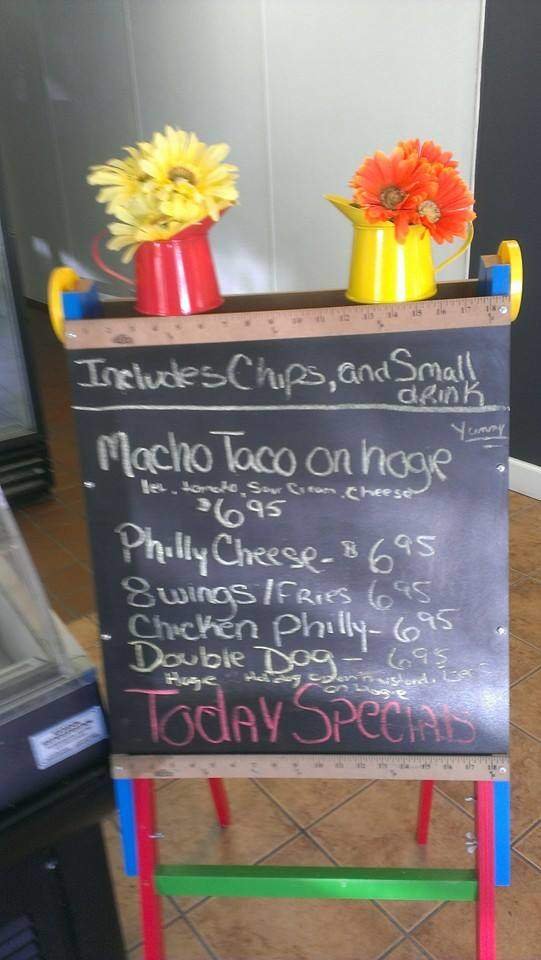 Includes Chips, and Small
drink
Yummy
Macho Taco on hogie
let, tomato, Sour Cream, Cheese
$6 95
Philly Cheese - $6 95
8 wings / Fries 6 95
Chicken Philly - 6 95
Double Dog - 6 95
Huge Hot dog mustard,
on Hogie
Today Specials